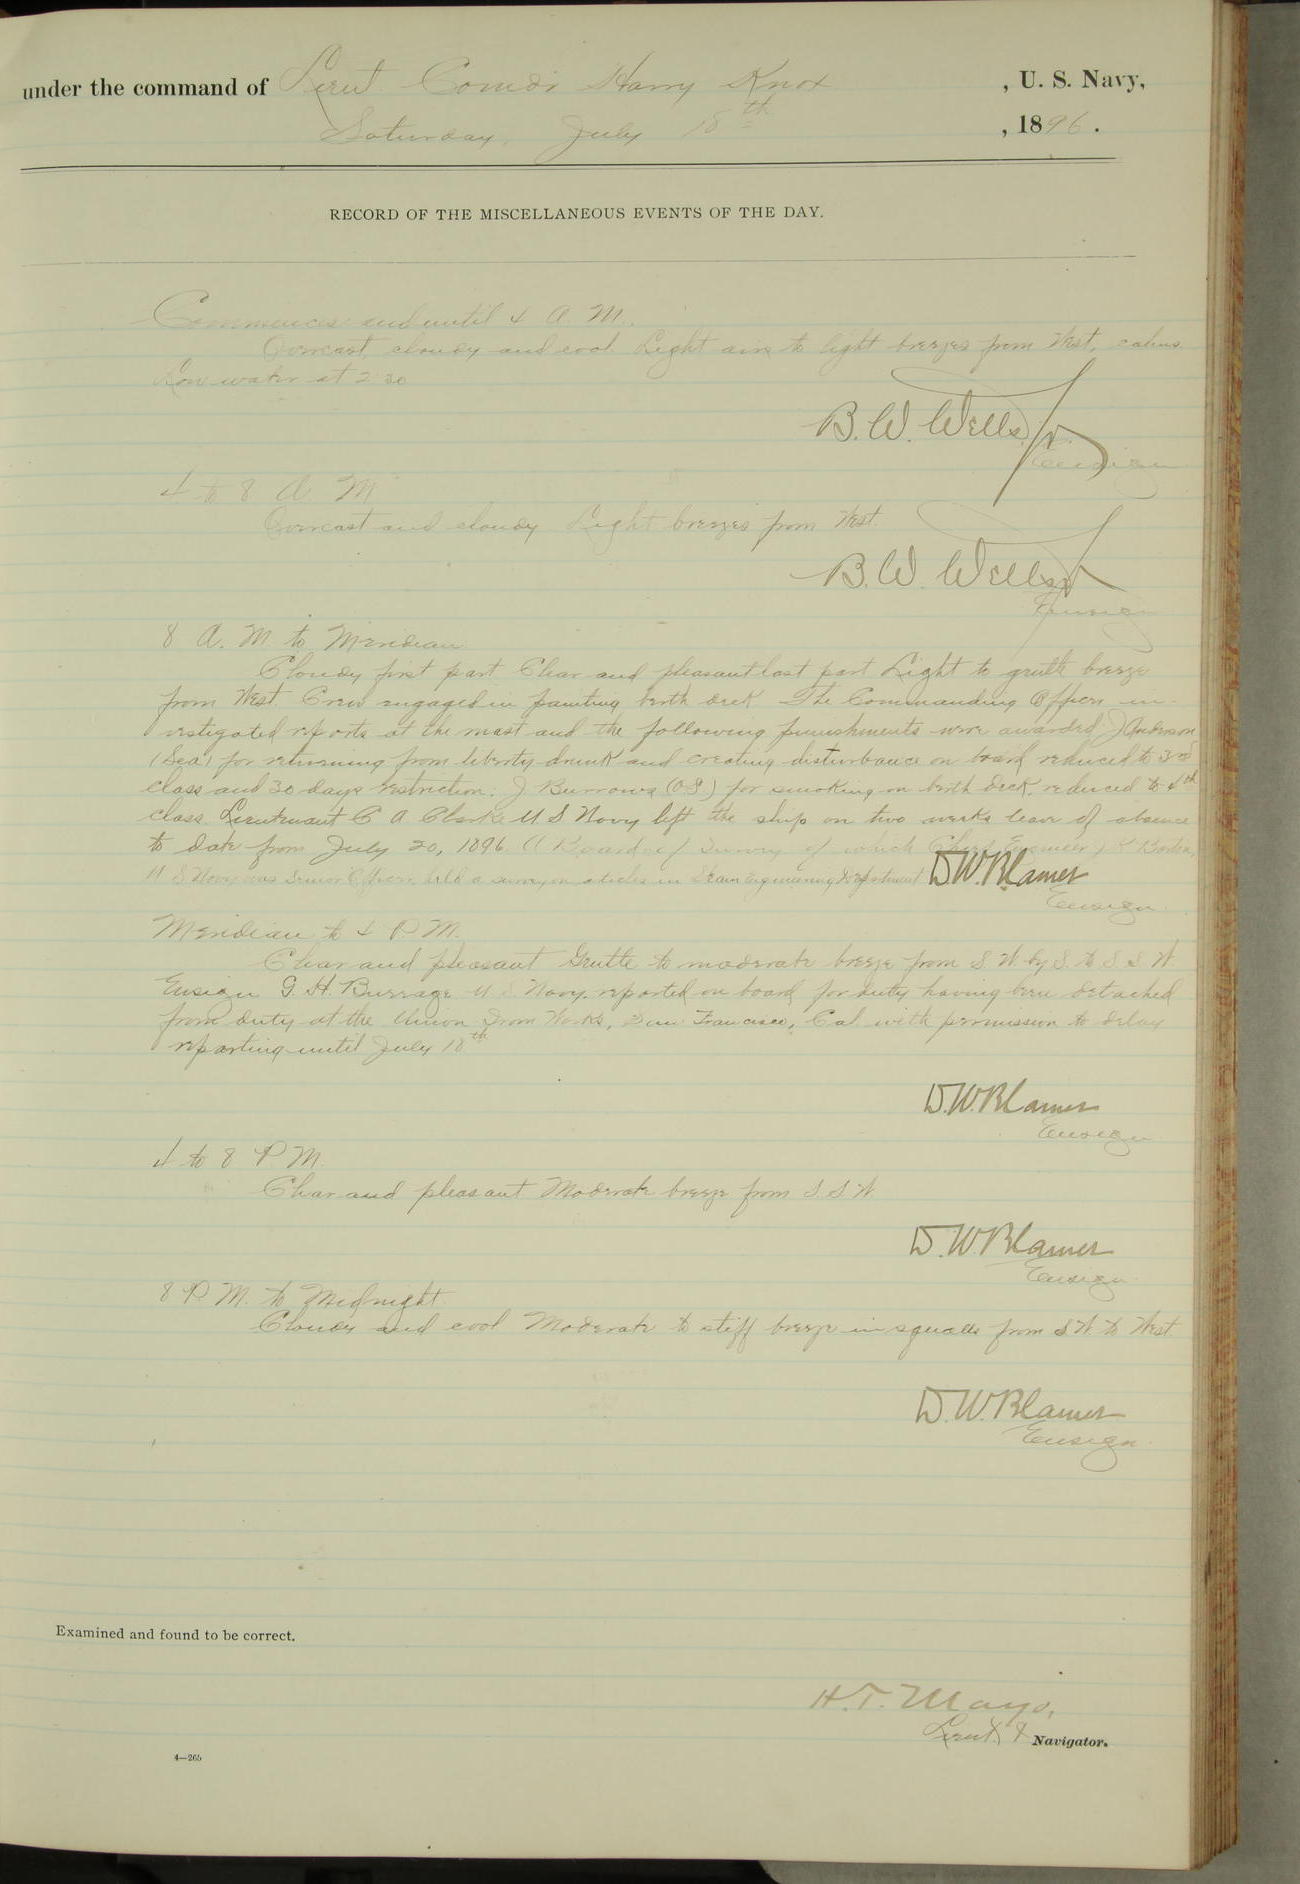 under the command of Lieut. Comdr Harry Knox, U. S. Navy,
Saturday, July 18th, 1896.
RECORD OF THE MISCELLANEOUS EVENTS OF THE DAY.
Commences and until 4 A. M.
Overcast, cloudy and cool Light airs to light breezes from West, calms
Low water at 2 30
B. W. Wells, Jr.
Ensign
4 to 8 A. M
Overcast and cloudy Light breezes from West.
B. W. Wells Jr
Ensign
8 A. M. to Meridian
Cloudy first part Clear and pleasant last part Light to gentle breeze
from West. Crew engaged in painting berth deck The Commanding Officer in-
vestigated reports at the mast and the following punishments were awarded J Anderson
(Sea) for returning from liberty drunk and creating disturbance on board reduced to 3rd
class and 30 days restriction. J Burrows (OS) for smoking on berth deck. reduced to 4th
class. Lieutenant C A Clarke U S Navy left the ship on two weeks leave of absence
to date from July 20, 1896. A Board of Survey of which Chief Engineer J K Barton,
U S Navy was Senior Officer, held a survey on articles in Steam Engineering Department D. W. Blamer
Ensign
Meridian to 4 P. M.
Clear and pleasant Gentle to moderate breeze from S. W. by S. to S S W
Ensign G. H. Burrage U S Navy. reported on board for duty having been detached
from duty at the Union Iron Works, San Francisco, Cal. with permission to delay
reporting until July 18th
D. W. Blamer
Ensign
4 to 8 P M.
Clear and pleasant Moderate breeze from S S W
D. W. Blamer
Ensign
8 P M. to Midnight
Cloudy and cool Moderate to stiff breeze in squalls from S W to West
D. W. Blamer
Ensign
Examined and found to be correct.
H. T. Mayo,
Lieut. & Navigator.
4—265